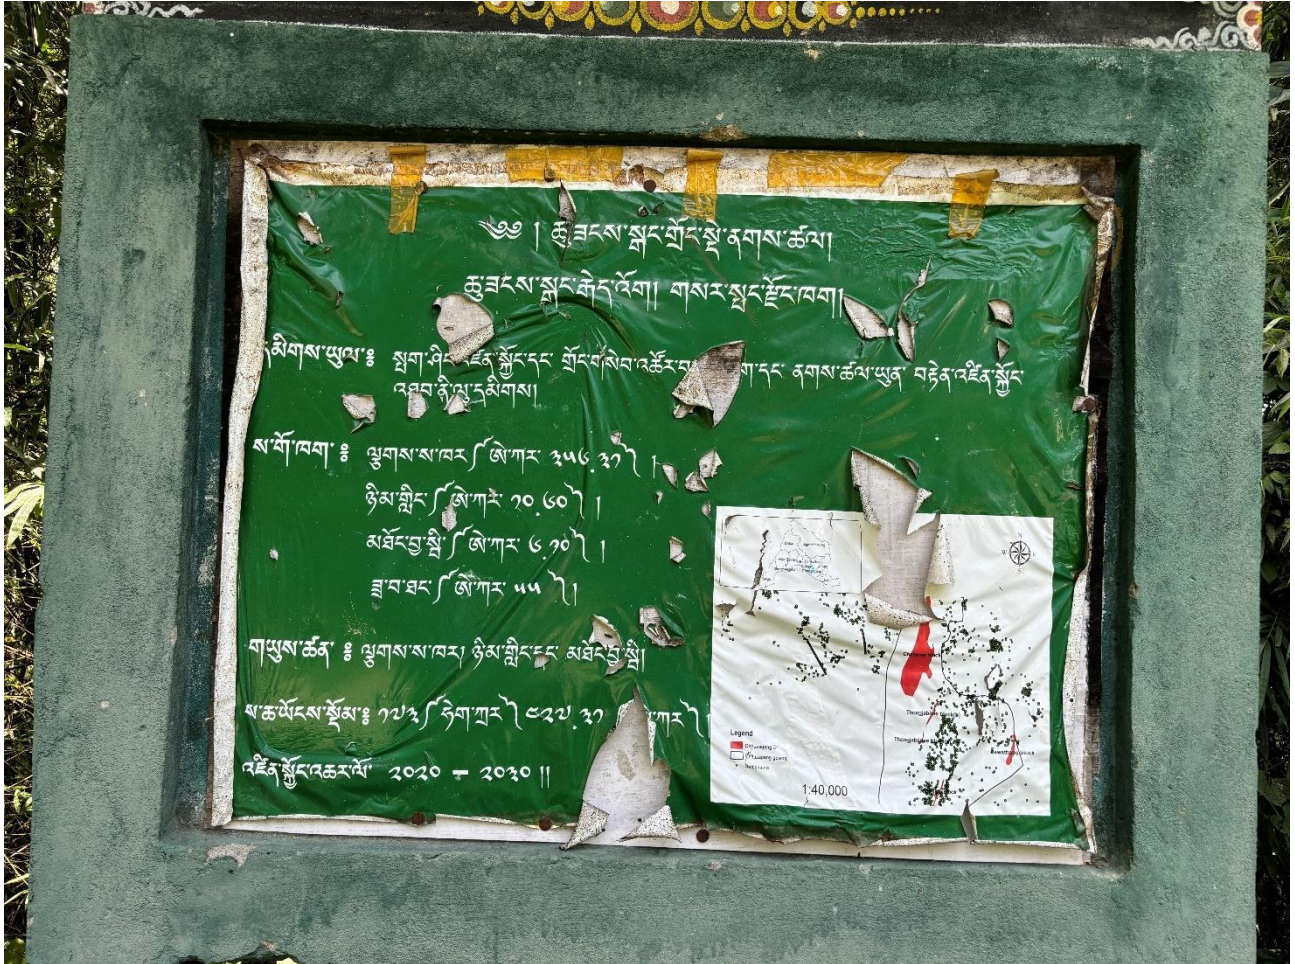 ༄༅ །  ཆུ་ཟངས་སྒང་གྲོང་སྡེ་ནགས་ཚལ།
ཆུ་ཟངས་སྒང་རྒེད་འོག།  གསར་སྤང་རྫོང་ཁག།
དམིགས་ཡུལ་༔ སྤག་ཤིང་ འཛིན་སྐྱོང་དང་ གྲོང་གསེབ་འཚོར་བ དང་ ནགས་ཚལ་ཡུན་ བརྟེན་འཛིན་སྐྱོང་
འཐབ་ནི་ལུ་དམིགས།
ས་གོ་ཁག་ ༔ ལྕགས་ས་ཁར་༼ ཨེ་ཀར་ ༣༥༦.༣༡༽ །
ཉི་མ་གླིང་༼ ཨེ་ཀར་ ༡༠.༦༠༽ །
མཐོང་བྱ་སྦི་༼ ཨེ་ཀར་ ༦.༡༠༽ །
ཟླ་བ་ཐང་༼ ཨེ་ཀར་ ༥༥ ༽།
གཡུས་ཚན་ ༔ ལྕགས་ས་ཁར། ཉི་མ་གླིང་དང་ མཐོང་བྱ་སྦི།
ས་ཆ་ཡོངས་སྡོམ་༔ ༡༧༣༼ ཧེག་ཀྲར་༽ ༤༢༧.༣༡ ཀར་༽
འཛིན་སྐྱོང་འཆར་ལོ་ ༢༠༢༠ – ༢༠༣༠ །།
Legend
1:40,000